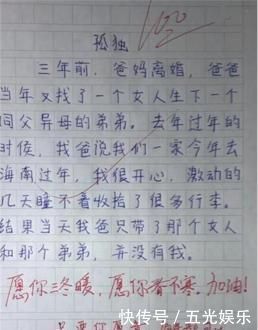 100
孤独
三年前，爸妈离婚，爸爸
当年又找了一个女人生下一个
同父异母的弟弟。去年过年的
时候，我爸说我们一家今年去
海南过年，我很开心，激动的
几天睡不着收拾了很多行李。
结果当天我爸只带了那个女人
和那个弟弟，并没有我。
愿你三冬暖，愿你春不寒。加油！
快传号/五光娱乐